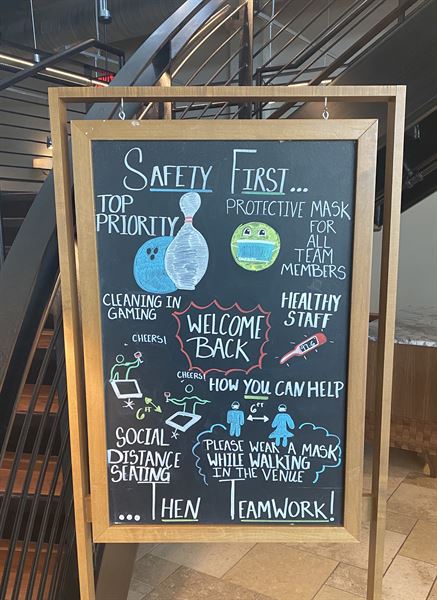 EXIT
SAFETY FIRST...
TOP
PRIORITY
PROTECTIVE MASK
FOR
ALL
TEAM
MEMBERS
CLEANING IN
GAMING
HEALTHY
STAFF
WELCOME
BACK
CHEERS!
CHEERS!
6 FT
HOW YOU CAN HELP
6 FT
SOCIAL
DISTANCE
SEATING
PLEASE WEAR A MASK
WHILE WALKING
IN THE VENUE
...THEN TEAMWORK!